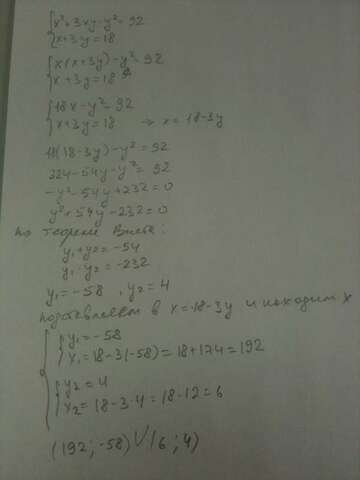 x²+3xy-y²=92
x+3y=18
x(x+3y)-y²=92
x+3y=18
18x-y²=92
x+3y=18 → x=18-3y
18(18-3y)-y²=92
324-54y-y²=92
-y²-54y+232=0
y²+54y-232=0
по теореме Виета:
y₁+y₂=-54
y₁·y₂=-232
y₁=-58, y₂=4
подставляем в x=18-3y и находим x
y₁=-58
x₁=18-3(-58)=18+174=192
y₂=4
x₂=18-3·4=18-12=6
(192;-58) V (6;4)